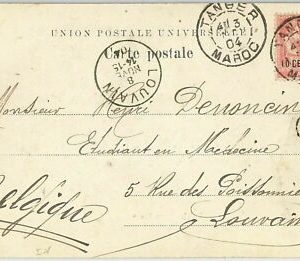 UNION POSTALE UNIVERSELLE
Carte postale
TANGER
04
MAROC
LOUVAIN
8
NOV
04
TANGER
10 CE
Monsieur Henri Denoncin
Etudiant en Médecine
5 Rue des Poissonnie
Louvain
Belgique